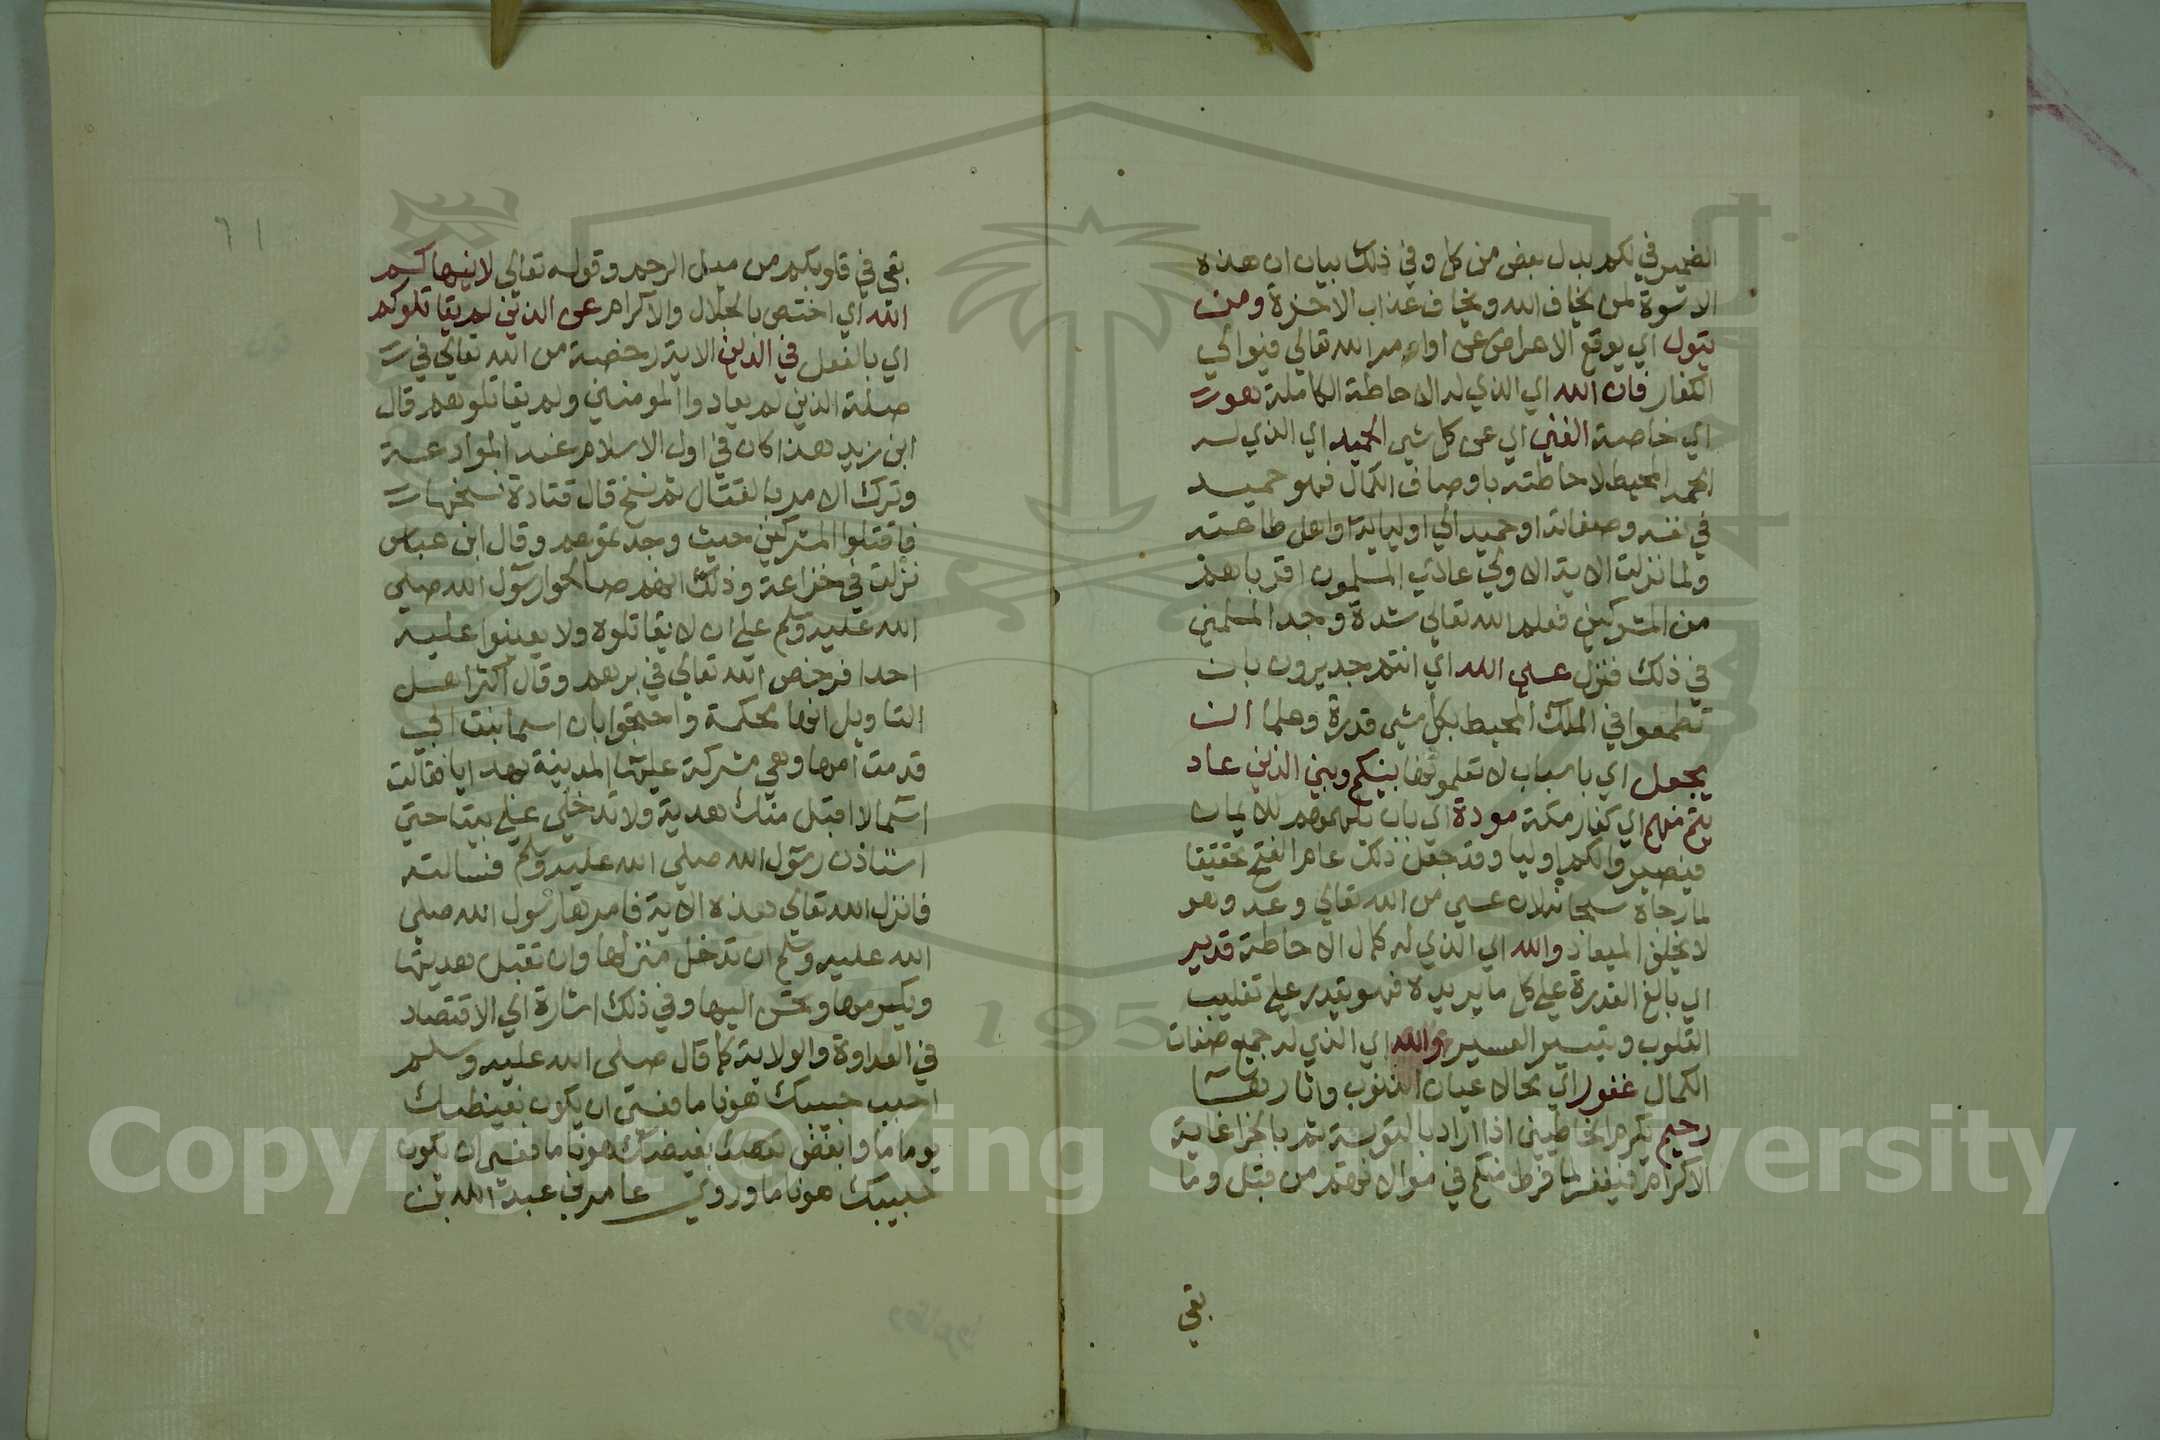 الضمير في لكم بدل بعض من كل وفي ذلك بيان ان هذه
الاسوة لمن يخاف الله ويخاف عذاب الاخرة ومن
يتول اي يوقع الاعراض عن اوامر الله تعالى فيوالي
الكفار فان الله اي الذي له الاحاطة الكاملة هو
اي خاصة الغني اي عن كل شي الحميد اي الذي له
الحمد المحيط لاحاطته باوصاف الكمال فهو حميد
في نفسه وصفاته او حميد الي اوليايه واهل طاعته
ولما نزلت الاية الاولي عادي المسلمون اقرباهم
من المشركين فعلم الله تعالى شدة وجد المسلمين
في ذلك فنزل عسى الله اي انتم جديرون بان
تطمعوا في الملك المحيط بكل شي قدرة وعلما ان
يجعل اي باسباب لا تعلمونها بينكم وبين الذين عاد
يتم منهم اي كفار مكة مودة اي بان يلهمهم للايمان
فيصيروا لكم اوليا وقد جعل ذلك عام الفتح تحقيقا
لما رجاه سبحانه لان عسى من الله تعالى وعد وهو
لا يخلف الميعاد والله اي الذي له كمال الاحاطة قدير
اي بالغ القدرة علي كل ما يريده فهو يقدر علي تقليب
القلوب وتيسير العسير والله اي الذي له جميع صفات
الكمال غفور اي محا لاعيان الذنوب واثارها
رحيم يكرم الخاطيين اذا اراد بالتوبة ثم بالجزا غاية
الاكرام فيغفر لما فرط منكم في موالاتهم من قبل وما
بقي
٦١
بقي في قلوبكم من ميل الرحم وقوله تعالي لا ينهاكم
الله اي اختص بالجلال والاكرام عن الذين لم يقاتلوكم
اي بالفعل في الدين الاية رخصة من الله تعالي في
صلة الذين لم يعادوا المومنين ولم يقاتلوهم قال
ابن زيد هذا كان في اول الاسلام عند الموادعة
وترك الامر بالقتال ثم نسخ قال قتادة نسختها
فاقتلوا المشركين حيث وجدتموهم وقال ابن عباس
نزلت في خزاعة وذلك انهم صالحوا رسول الله صلى
الله عليه وسلم علي ان لا يقاتلوه ولا يعينوا عليه
احدا فرخص الله تعالي في برهم وقال اكثر اهل
التاويل انها محكمة واحتجوا بان اسما بنت ابي
قدمت امها وهي مشركة عليها المدينة بهدايا فقالت
اسما لا اقبل منك هدية ولا تدخلي علي بيتا حتي
استاذن رسول الله صلى الله عليه وسلم فسالته
فانزل الله تعالي هذه الاية فامرها رسول الله صلى
الله عليه وسلم ان تدخل منزلها وان تقبل هديتها
ويكرمها وتحسن اليها وفي ذلك اشارة الي الاقتصاد
في العداوة والولاية كما قال صلى الله عليه وسلم
احبب حبيبك هونا ما فعسى ان يكون بغيضك
يوما ما وابغض بغيضك هونا ما فعسى ان يكون
حبيبك هونا ما وروي عامر بن عبد الله بن
Copyright © King Saud University
195